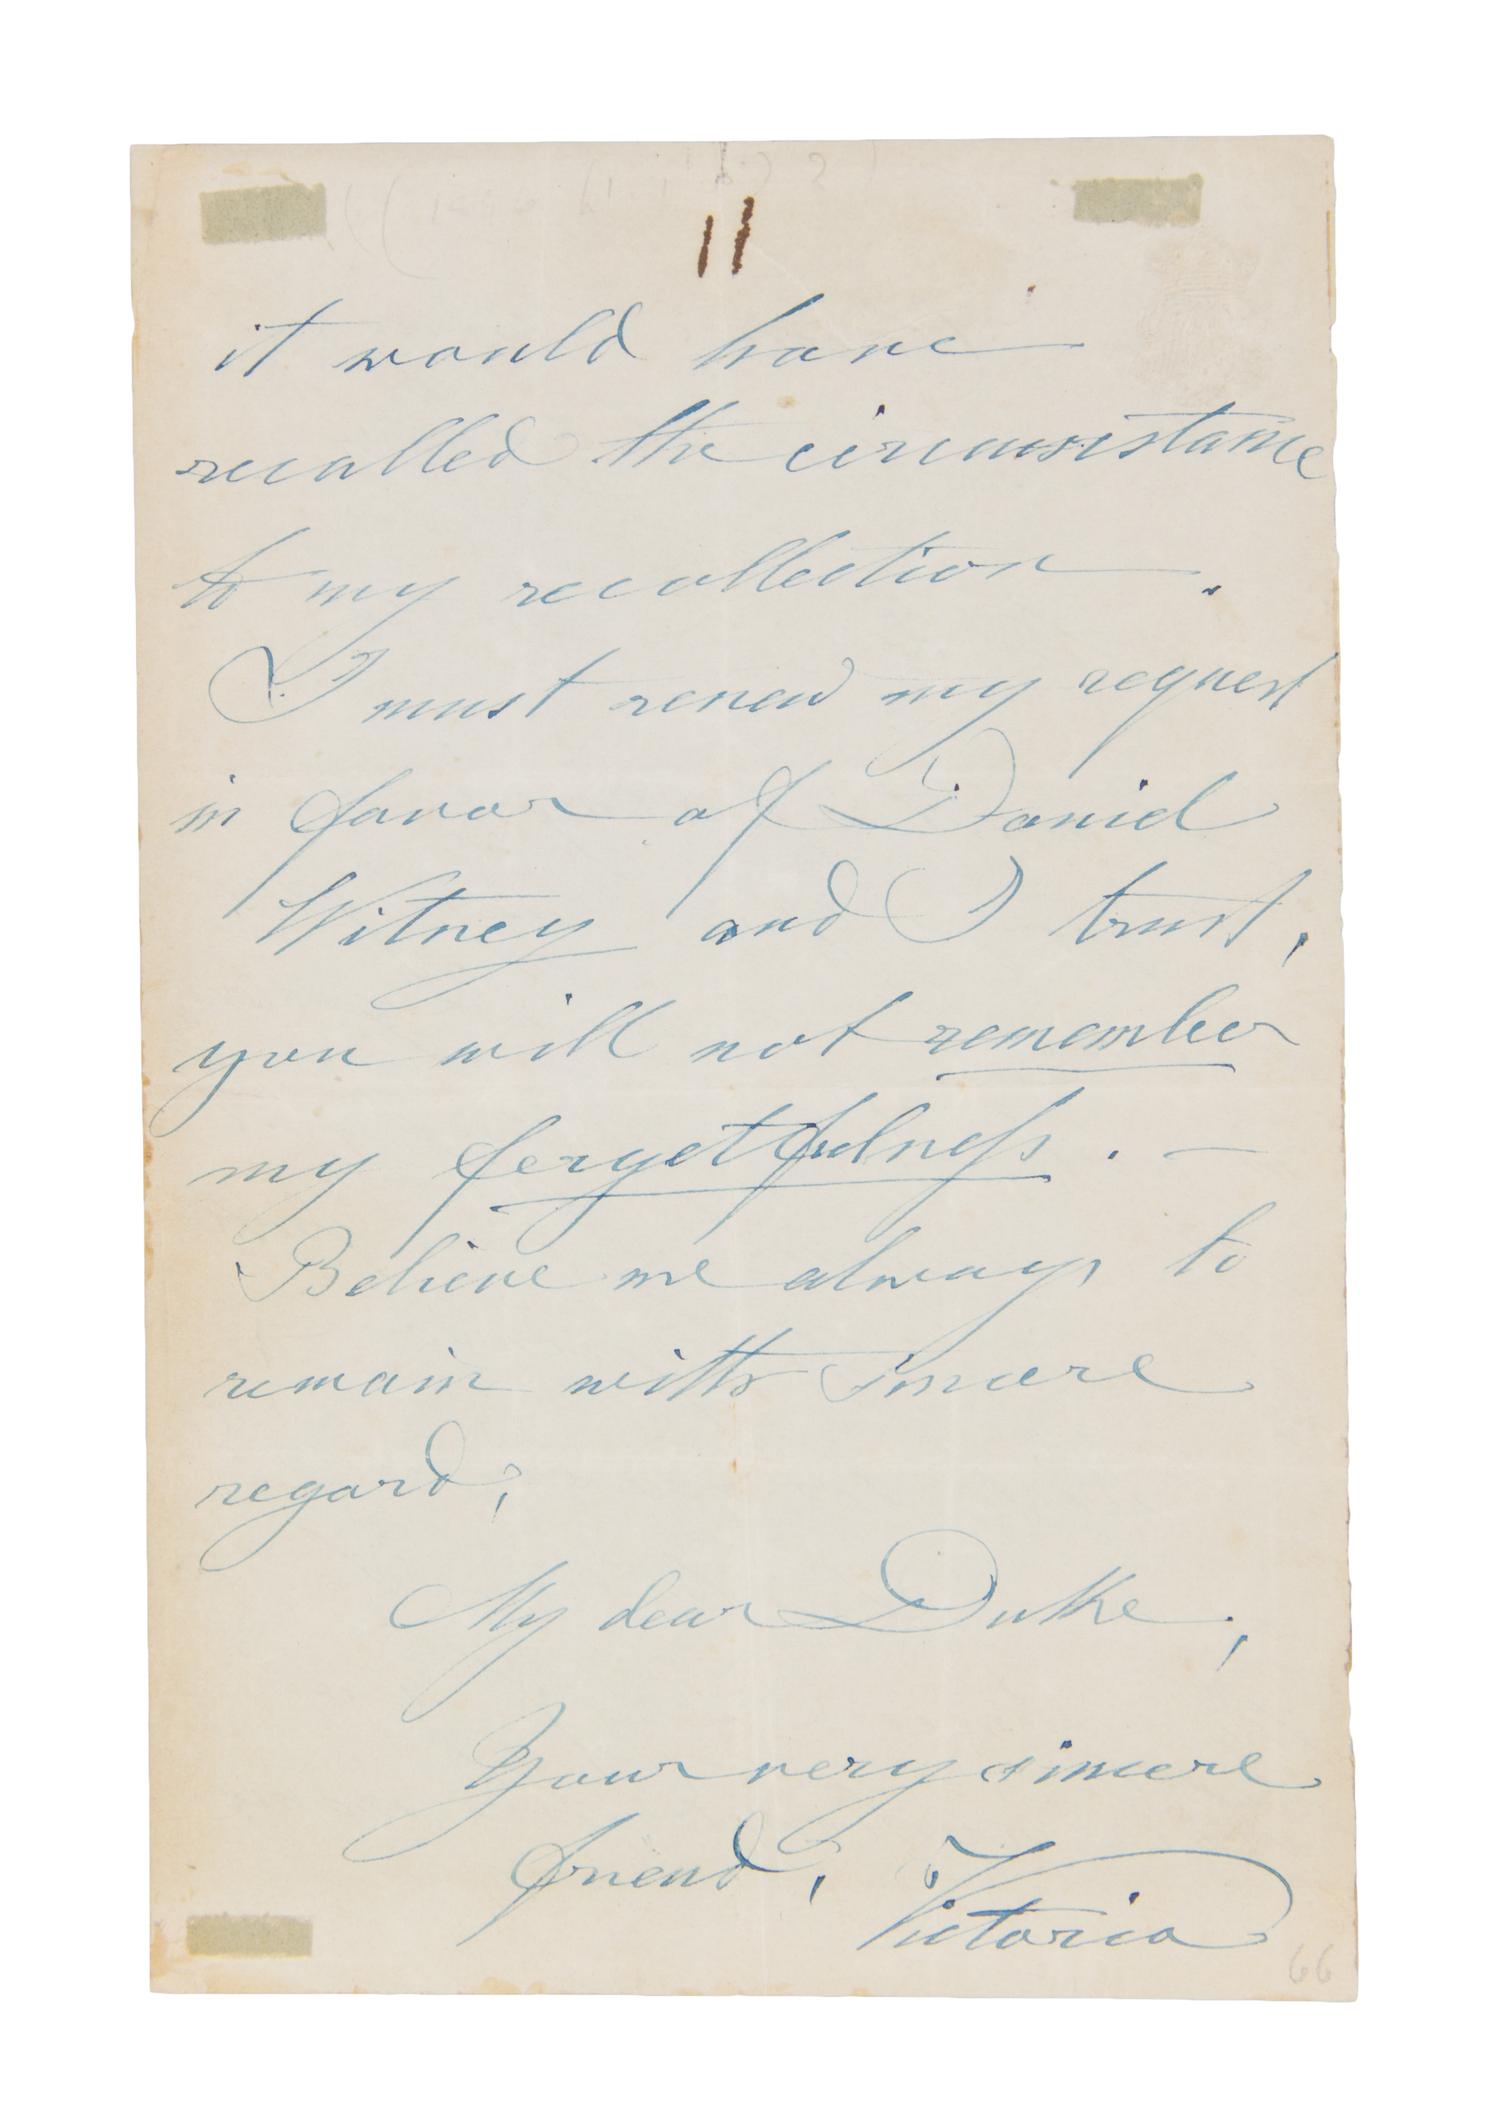 11
it would have
recalled the circumstance
to my recollection.
I must renew my request
in favor of Daniel
Witney and I trust,
you will not remember
my forgetfulness. —
Believe me always to
remain with sincere
regard,
My dear Duke,
Your very sincere
friend, Victoria
66